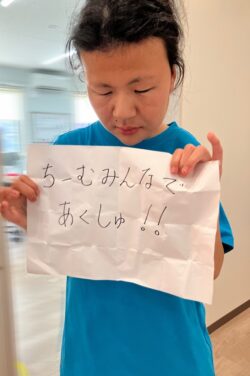 ちーむみんなで
あくしゅ!!